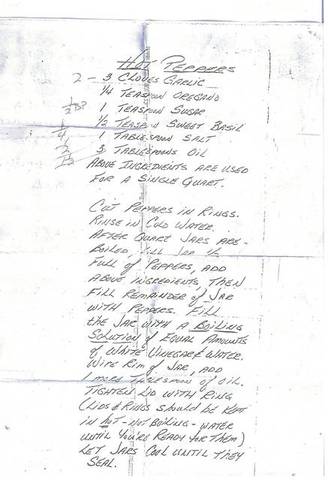 HOT PEPPERS
2 - 3 CLOVES GARLIC
1/4 TEASPOON OREGANO
1 TEASPOON SUGAR
1/2 TEASPOON SWEET BASIL
1 TABLESPOON SALT
3 TABLESPOONS OIL
ABOVE INGREDIENTS ARE USED
FOR A SINGLE QUART.
CUT PEPPERS IN RINGS.
RINSE IN COLD WATER.
AFTER QUART JARS ARE
BOILED, FILL JAR 1/2
FULL of PEPPERS, ADD
ABOVE INGREDIENTS, THEN
FILL REMAINDER of JAR
WITH PEPPERS. FILL
the JAR WITH A BOILING
SOLUTION of EQUAL AMOUNTS
of WHITE VINEGAR & WATER.
WIPE RIM of JAR, ADD
1 MORE TABLESPOON of OIL.
TIGHTEN LID WITH RING
(LIDS & RINGS SHOULD BE KEPT
IN HOT - NOT BOILING - WATER
UNTIL YOU'RE READY FOR THEM)
LET JARS COOL UNTIL THEY
SEAL.